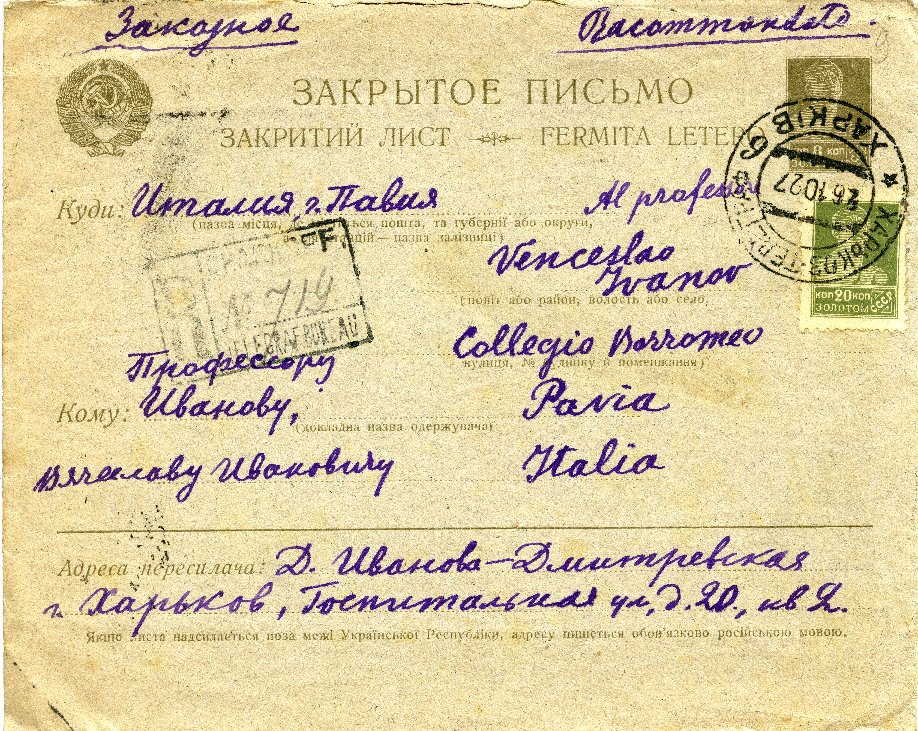 Заказное Racommandato.
ЗАКРЫТОЕ ПИСЬМО
ЗАКРИТИЙ ЛИСТ FERMITA LETERO
ХАРКІВ 6
26 10 27
Куди: Италия, г. Павия Al profesor
(назва місця, де пошта, та губернії або округи,
станцій — назва залізниці)
Venceslao
Ivanov
(повіт або район, волость або село,
№ 719
КОП 20 КОП.
ЗОЛОТОМ СССР
Collegio Borromeo
вулиця, № будинку й помешкання)
Профессору
Кому: Иванову, Pavia
(докладна назва одержувача)
Вячеславу Ивановичу Italia
Адреса пересилача: Д. Иванова-Дмитревская
г. Харьков, Госпитальная ул, д. 20., кв 2.
Якщо листа надсилається поза межі Української Республіки, адресу пишеться обов'язково російською мовою.